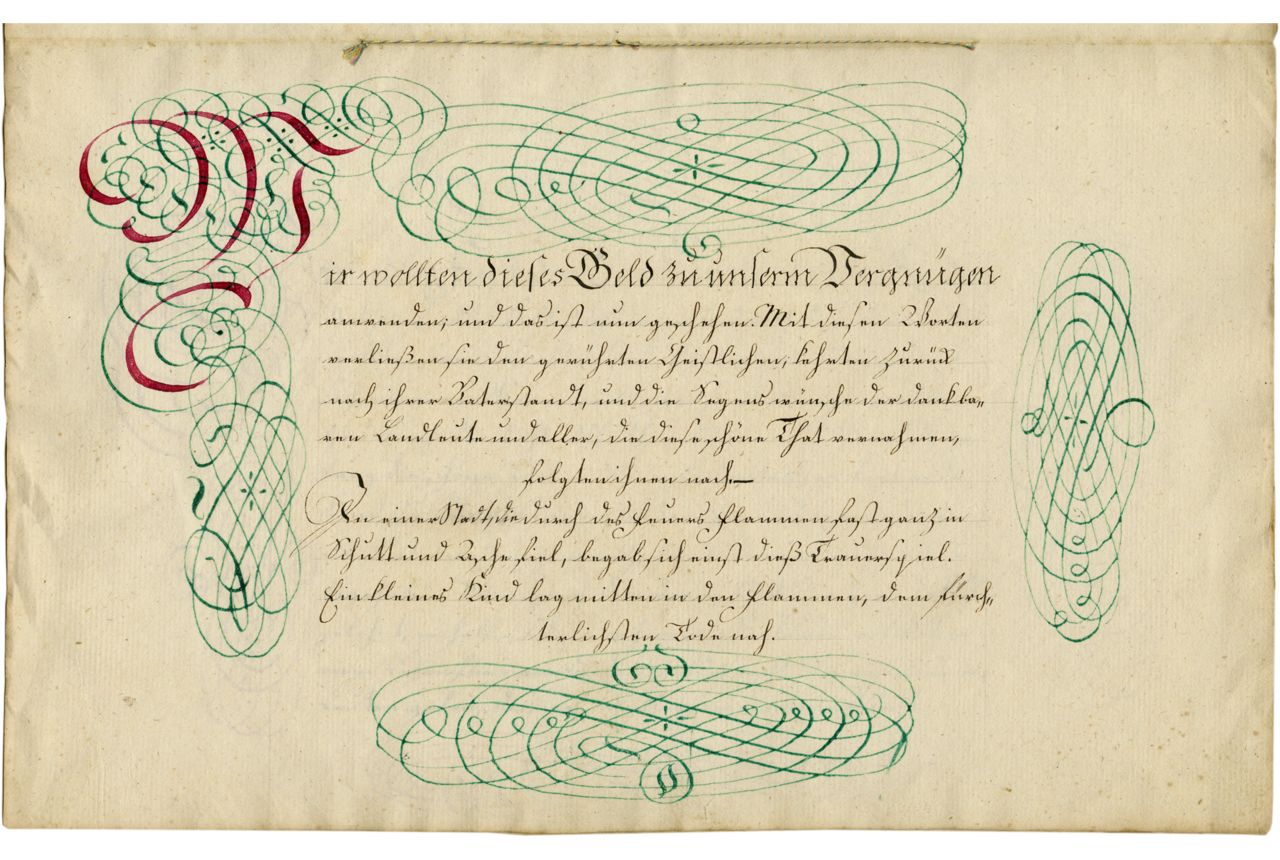 Wir wollten dieses Geld zu unserm Vergnügen
anwenden; und das ist nun geschehen. Mit diesen Worten
verließen sie den gerührten Geistlichen, kehrten zurück
nach ihrer Vaterstandt, und die Segenswünsche der dankba-
ren Landleute und aller, die diese schöne That vernahmen,
folgten ihnen nach.—
In einer Stadt, die durch des Feuers Flammen fast ganz in
Schutt und Asche fiel, begab sich einst dieß Trauerspiel.
Ein kleines Kind lag mitten in den Flammen, dem fürch-
terlichsten Tode nah.